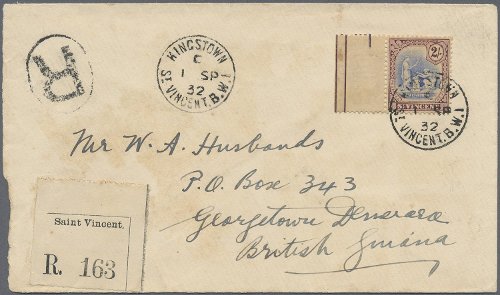 R
KINGSTOWN
C
1 SP
32
ST VINCENT. B.W.I
2/-
ST VINCENT
1 SP
32
ST VINCENT. B.W.I
Mr W. A. Husbands
P.O. Box 343
Georgetown Demerara
British Guiana
Saint Vincent.
R. 163